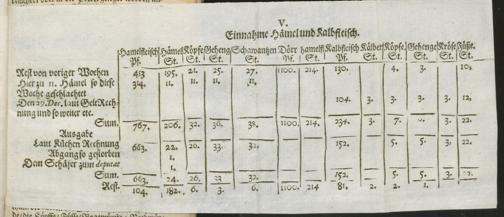 V.
Einnahme Hämel und Kalbfleisch.
Hamelfleisch Hämel Köpfe Geheng Schawantzen Dörr hamelfl Kalbfleisch Kälber Köpfe Gehenge Kröse Füsse.
Pf. St. St. St. St. St. Pf. St. St. St. St. St.
Rest von voriger Wochen 413 195. 21. 25. 27. 1100. 214. 130. 4. 4. 10.
Hierzu 11. Hämel so diese 354. 11. 11. 11. 11.
Woche geschlachtet
Den 29. Dec. laut Rech- 104. 3. 3. 3. 3. 12.
nung und so weiter etc.
Sum. 767. 206. 32. 36. 38. 1100. 214 234. 3. 7. 3. 22.
Ausgabe
Laut Küchen Rechnung 663. 22. 20. 33. 32. 152. 5. 5. 3. 22.
Abgang so gestorben 1.
Dem Schäfer zum deputat 1.
Sum. 663. 24. 26. 33 32. 152. 5. 5. 3. 22
Rest. 104. 182. 6. 3. 6. 1100. 214 82. 2. 2. 1.